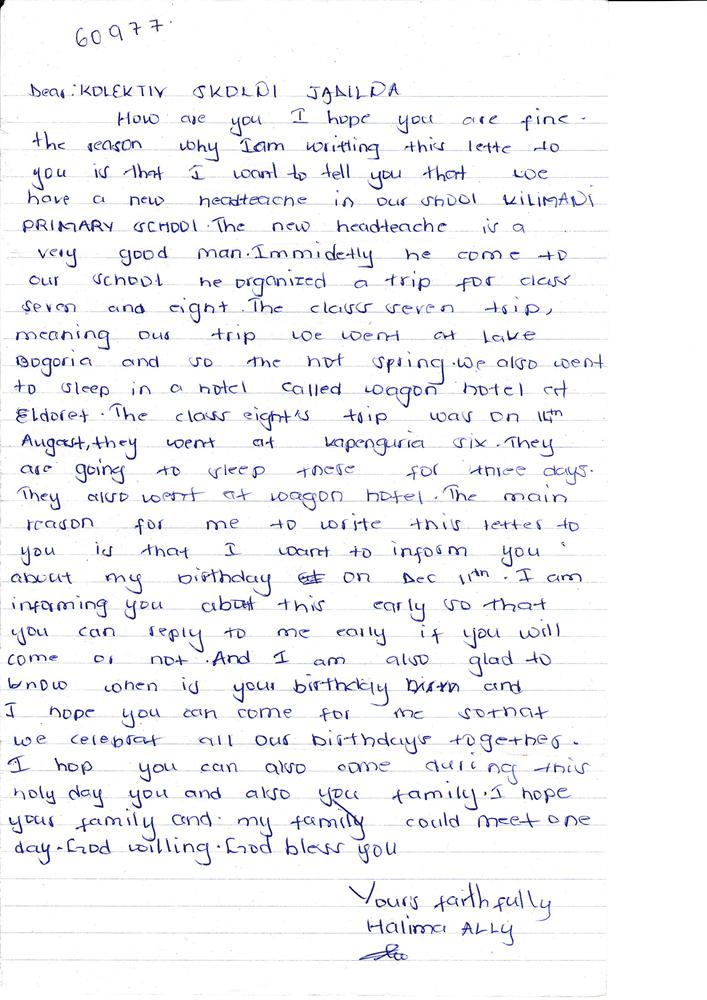 60977.
Dear: KOLEKTIV SKOLNI JANILDA
How are you I hope you are fine.
the reason why I am writting this lette to
you is that I want to tell you that we
have a new headteache in our shool KILIMANI
PRIMARY SCHOOL. The new headteache is a
very good man. Immidetly he come to
our school he organized a trip for class
seven and eight. The class seven trip,
meaning our trip we went at Lake
Bogoria and so the hot spring. we also went
to sleep in a hotel called wagon hotel at
Eldoret. The class eight's trip was on 14th
August, they went at kapenguria six. They
are going to sleep there for three days.
They also went at wagon hotel. The main
reason for me to write this letter to
you is that I want to inform you
about my birthday on Dec 11th. I am
informing you about this early so that
you can reply to me early if you will
come or not. And I am also glad to
know when is your birthday and
I hope you can come for me sothat
we celebrat all our birthdays together.
I hop you can also come during this
holy day you and also you family. I hope
your family and my family could meet one
day. God willing. God bless you
Yours faithfully
Halima ALLY